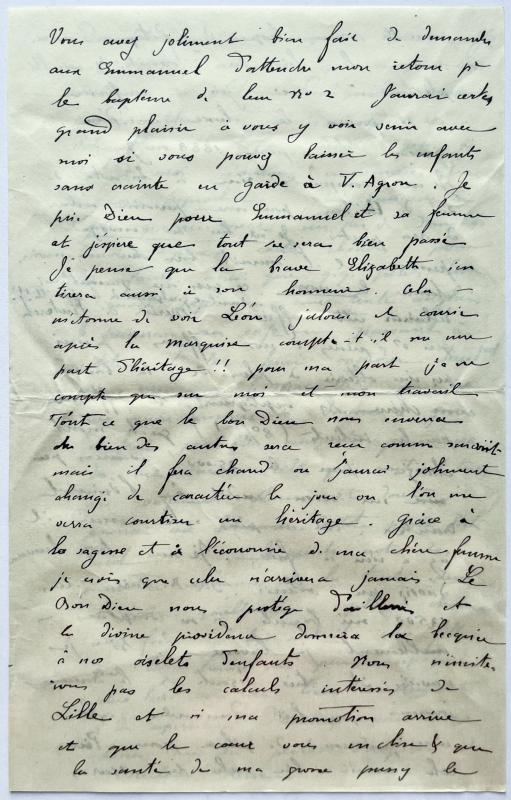 Vous avez joliment bien fait de demander
aux Emmanuel d'attendre mon retour pr
le baptême de leur no 2 J'aurai certes
grand plaisir à vous y voir venir avec
moi si vous pouvez laisser les enfants
sans crainte en garde à T. Agron. Je
prie Dieu pour Emmanuel et sa femme
et j'espère que tout se sera bien passé
Je pense que la brave Elizabeth s'en
tirera aussi à son honneur. Cela
m'étonne de voir Léon jaloux et courir
après la marquise compte-t-il sur une
part d'héritage !! pour ma part je ne
compte que sur moi et mon travail
Tout ce que le bon Dieu nous enverra
du bien des autres sera reçu comme
mais il fera chaud ou j'aurai joliment
changé de caractère le jour ou l'on me
verra courtiser un héritage. Grâce à
la sagesse et à l'économie de ma chère femme
je crois que cela n'arrivera jamais Le
Bon Dieu nous protège d'ailleurs et
la divine providence donnera la becquée
à nos oiselets d'enfants. Nous n'imite-
rons pas les calculs intéressés de
Lille et si ma promotion arrive
et que le cœur vous incline & que
la santé de ma grosse pussy le